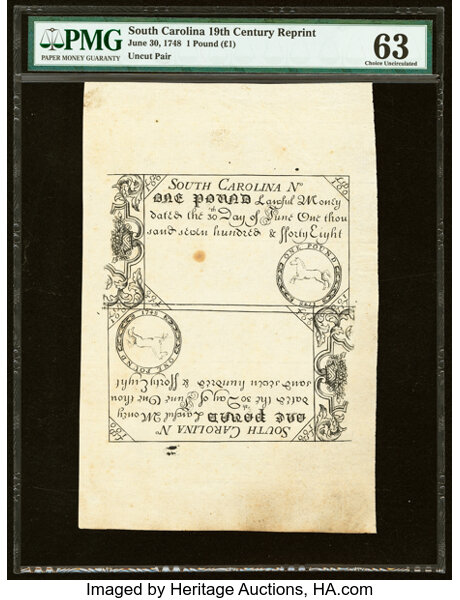 PMG
PAPER MONEY GUARANTY
South Carolina 19th Century Reprint
June 30, 1748 1 Pound (£1)
Uncut Pair
63
Choice Uncirculated
SOUTH CAROLINA No
ONE POUND Lawful Money
dated the 30th Day of June One thou
sand seven hundred & fforty Eight
ONE POUND
1748
1748
ONE POUND
SOUTH CAROLINA No
ONE POUND Lawful Money
dated the 30th Day of June One thou
sand seven hundred & fforty Eight
Imaged by Heritage Auctions, HA.com